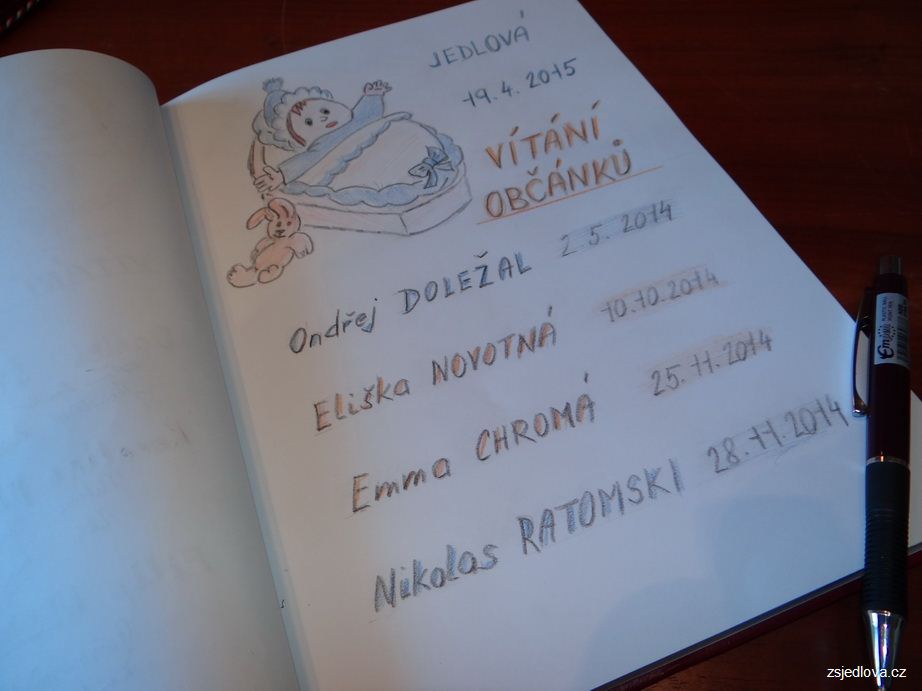 JEDLOVÁ
19.4.2015
VÍTÁNÍ
OBČÁNKŮ
Ondřej DOLEŽAL 2.5.2014
Eliška NOVOTNÁ 10.10.2014
Emma CHROMÁ 25.11.2014
Nikolas RATOMSKI 28.11.2014
zsjedlova.cz